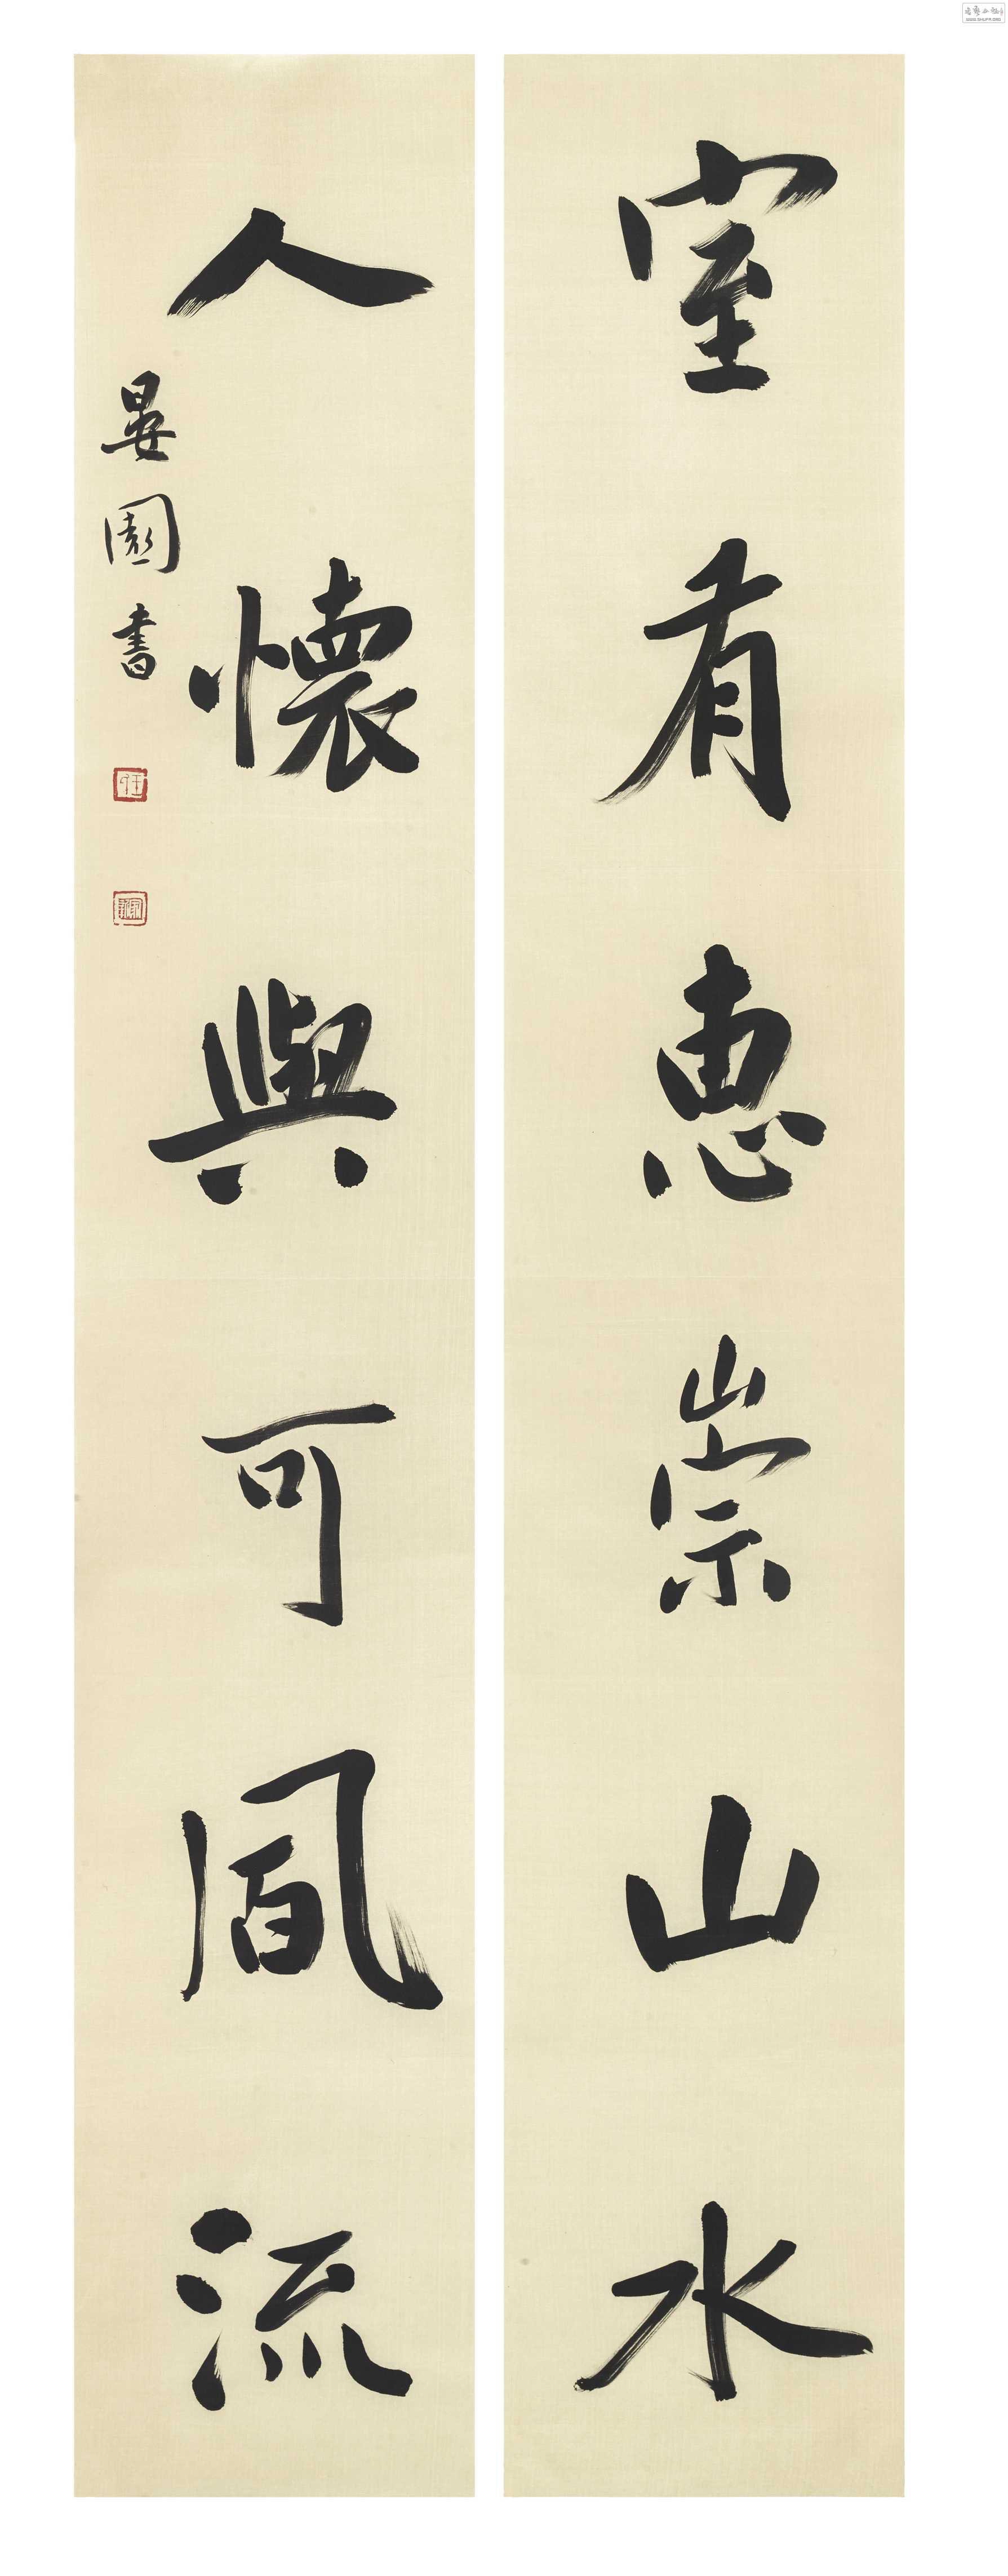 室有惠崇山水
人懷與可風流
晏園書